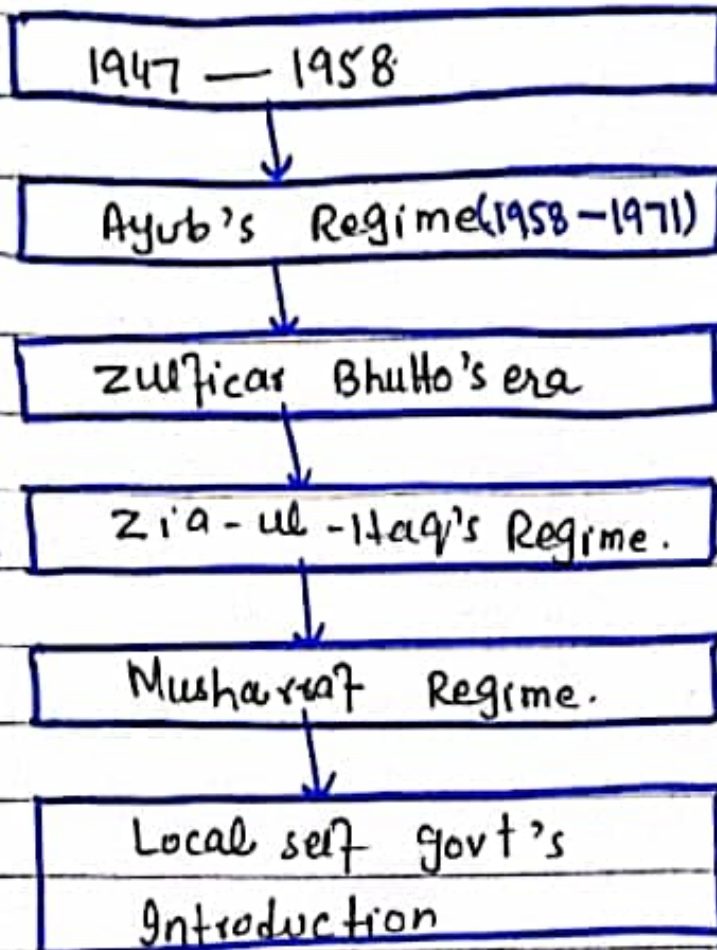 1947 — 1958
Ayub's Regime (1958-1971)
Zulficar Bhutto's era
Zia-ul-Haq's Regime.
Musharraf Regime.
Local self govt's
Introduction